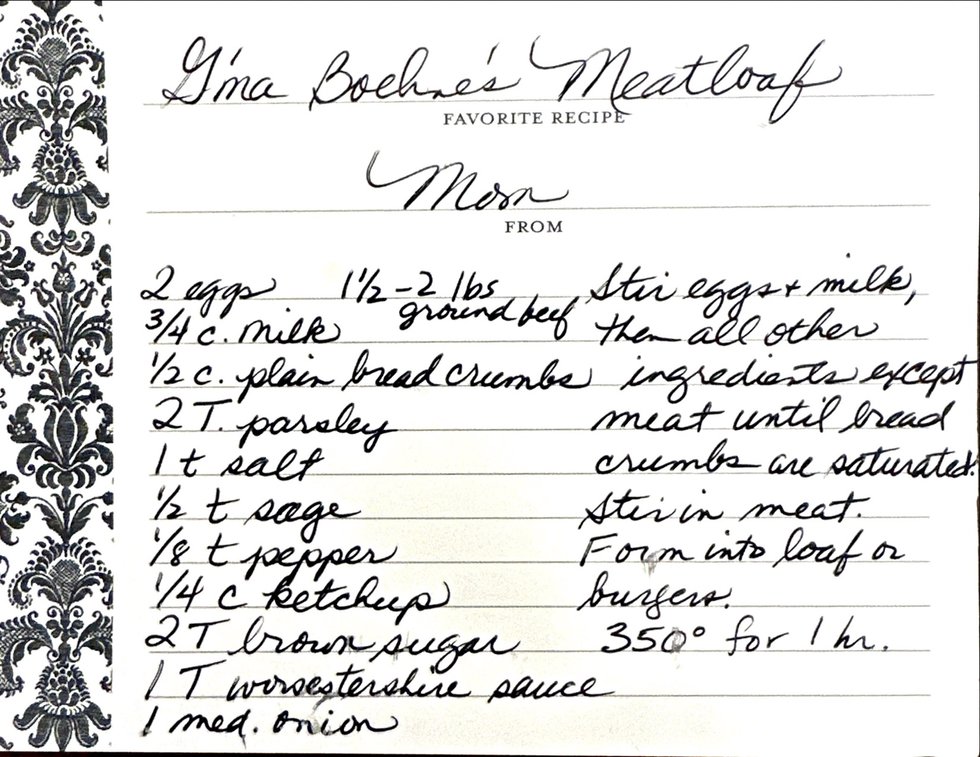 G'ma Boehne's Meatloaf
FAVORITE RECIPE
Mom
FROM
2 eggs
3/4 c. milk
1 1/2 - 2 lbs
ground beef
1/2 c. plain bread crumbs
2 T. parsley
1 t salt
1/2 t sage
1/8 t pepper
1/4 c ketchup
2 T brown sugar
1 T worsestershire sauce
1 med. onion
Stir eggs + milk,
then all other
ingredients except
meat until bread
crumbs are saturated.
Stir in meat.
Form into loaf or
burgers.
350° for 1 hr.